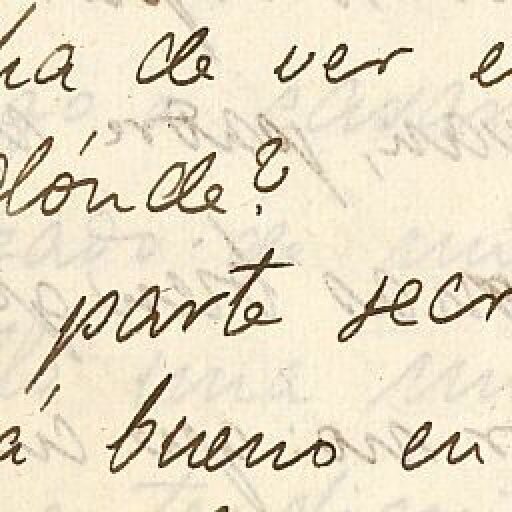 ha de ver e
dónde?
parte secr
á bueno en